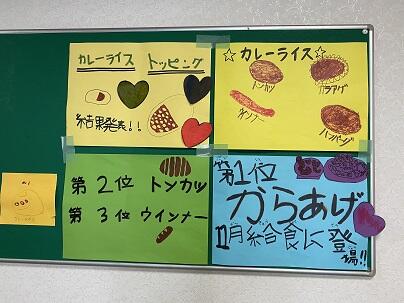 カレーライス トッピング
結果発表!!
☆カレーライス☆
トンカツ
カラアゲ
ウインナー
ハンバーグ
第2位 トンカツ
第3位 ウインナー
第1位
からあげ
11月給食に登場!!